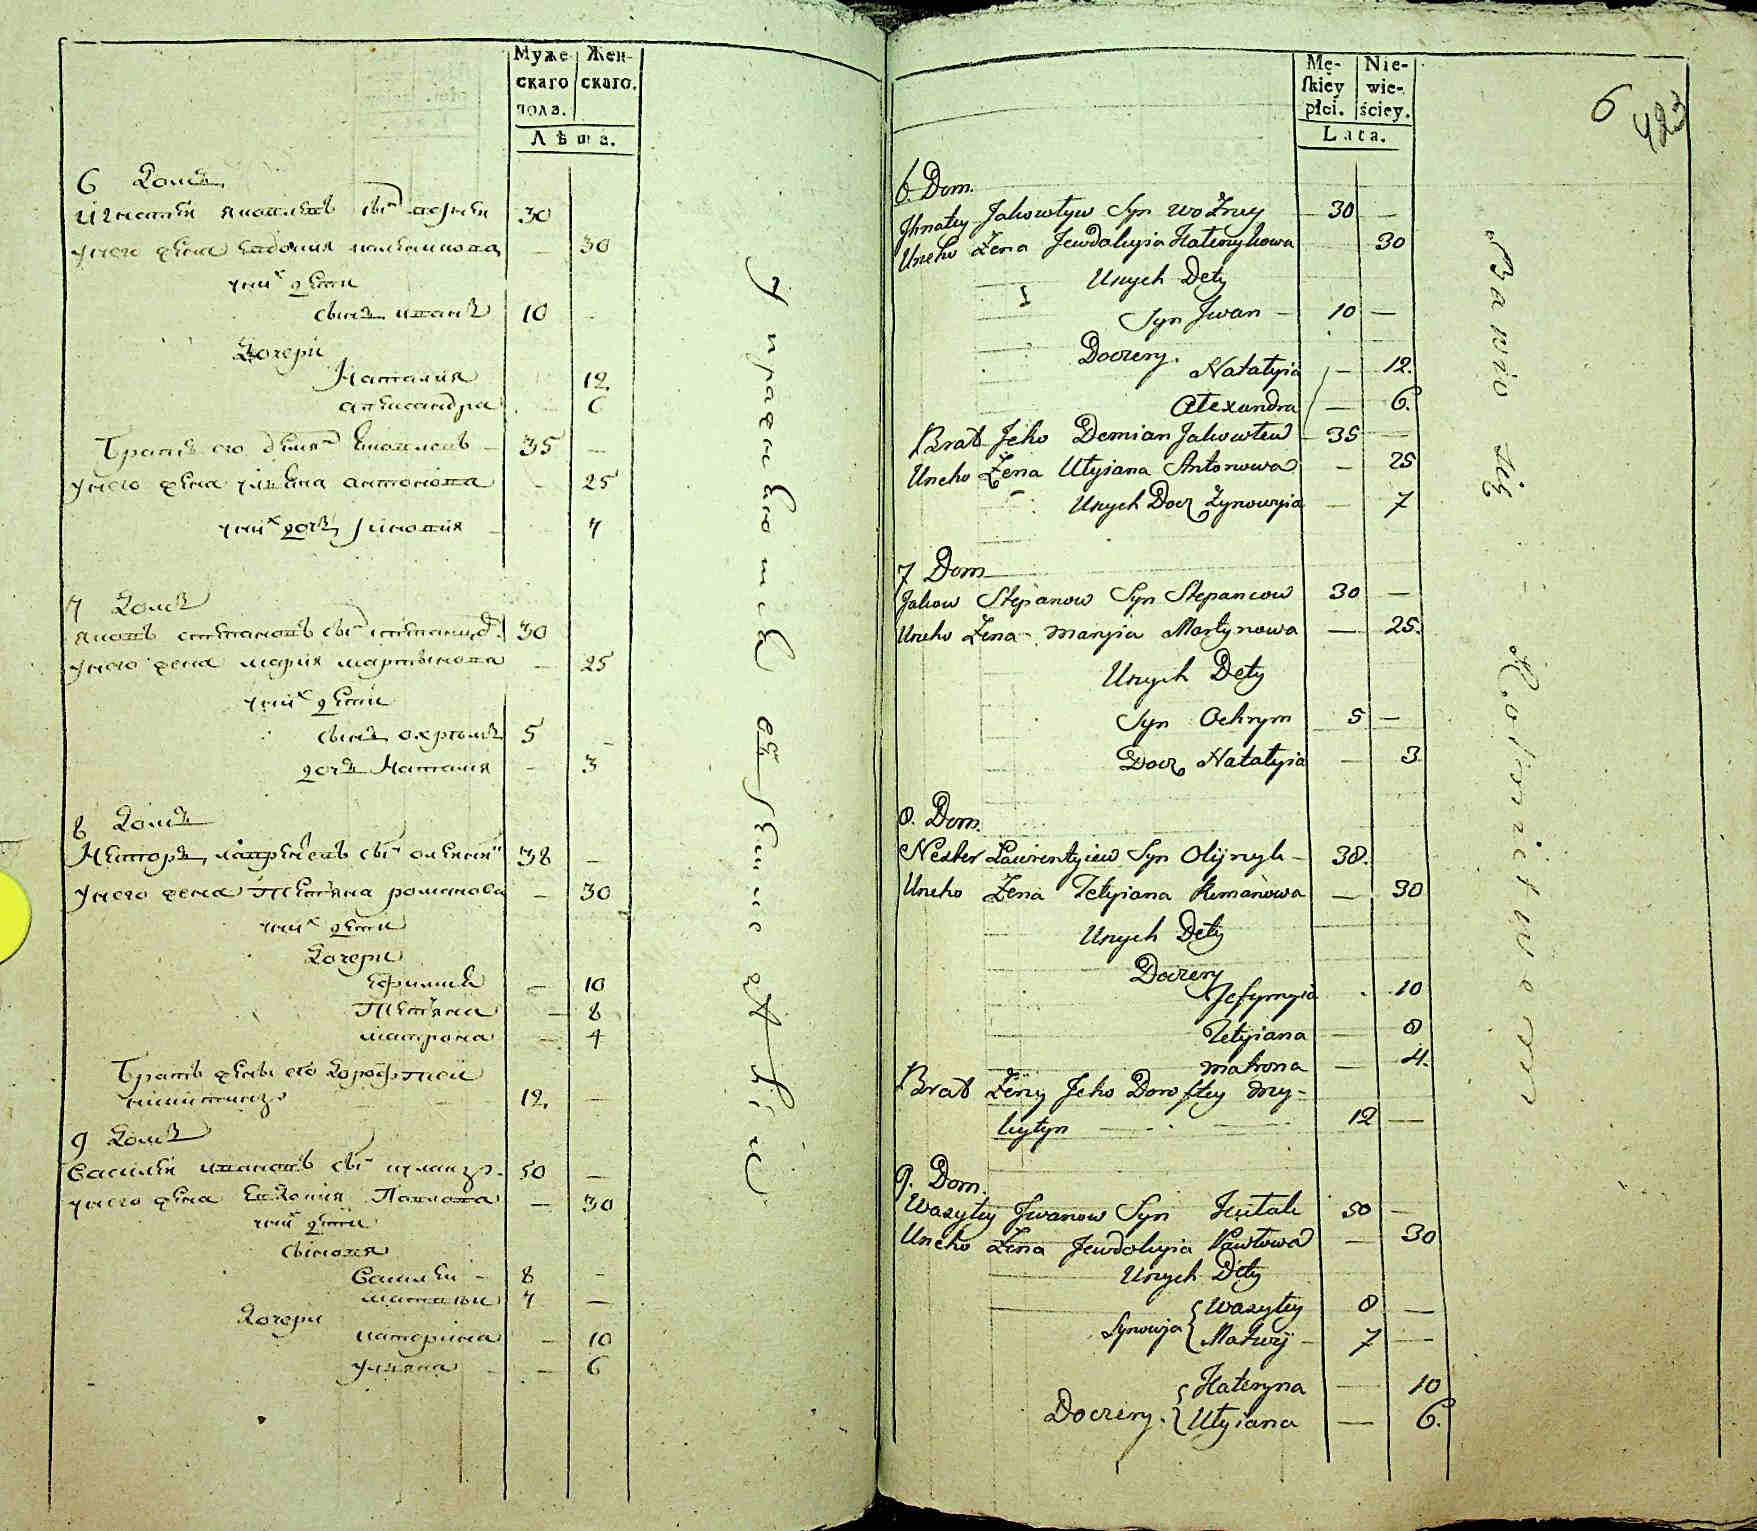 Муже-
скаго
пола.
Жен-
скаго.
Лѣта.
6 Домъ
Игнатїй Яковлевъ сынъ
30
унего жена Евдокия
30
уних дети
сынъ иванъ
10
дочери
Наталия
12
александра
6
братъ его Демянъ Яковлевъ
35
унего жена улияна антонова
25
уних дочь Зиновия
7
7 Домъ
яковъ степановъ сынъ
30
унего жена мария мартынова
25
уних дети
сынъ охримъ
5
дочь Наталия
3
8 Домъ
Несторъ лавреневъ сынъ олейник
38
унего жена Тетяна романова
30
уних дети
дочери
ефимия
10
Тетяна
8
матрона
4
братъ жены его Дорофтей
никитинъ
12
9 Домъ
Василий ивановъ сынъ
50
унего жена Евдокия Павлова
30
уних дети
сыновя
Василий
8
матвий
7
дочери
катерина
10
улияна
6
Упражняются въ
Mę-
skiey
płci.
Nie-
wie-
ściey.
Lata.
6
423
6 Dom.
Jhnatey Jakowlyw Syn Woźny
30 —
Uneho Żena Jewdakyia Haterykowa
30
Unych Dety
Syn Jwan —
10 —
Doczery.
Natalyia
— 12.
Alexandra
— 6.
Brat Jeho Demian Jakowlew
35 —
Uneho Żena Ulyiana Antonowa
— 25
Unych Docz Zynowyia
— 7
7 Dom
Jakow Stepanow Syn Stepancow
30 —
Uneho Żena Maryia Martynowa
— 25.
Unych Dety
Syn Ochrym
5 —
Docz Natalyia
— 3
8. Dom.
Nester Lawrentyiew Syn Olijnyk —
38.
Uneho Żena Tetyiana Romanowa
— 30
Unych Dety
Doczery
Jefymyia
10
Tetyiana
— 8
Matrona
— 4.
Brat Żeny Jeho Doroftey My-
kytyn
12 —
9. Dom.
Wasyley Jwanow Syn Hutak
50 —
Uneho Żena Jewdokyia Pawłowa
— 30
Unych Dety
Synowja
Wasyley
8 —
Matwij —
7 —
Doczery.
Hateryna
— 10
Ulyiana
— 6.
Bawio się Rolnictwem